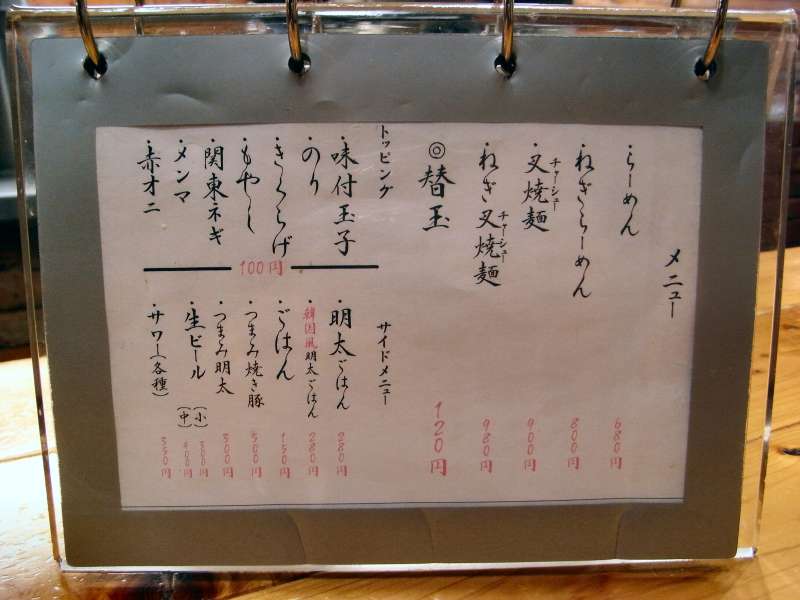 メニュー
・らーめん 680円
・ねぎらーめん 800円
・叉焼麺 チャーシュー 900円
・ねぎ叉焼麺 チャーシュー 980円
◎替玉 120円
トッピング
・味付玉子
・のり
・きくらげ
・もやし
・関東ネギ
・メンマ
・赤オニ
100円
サイドメニュー
・明太ごはん 280円
・韓国風明太ごはん 280円
・ごはん 150円
・つまみ焼き豚 500円
・つまみ明太 300円
・生ビール (小) 300円
(中) 400円
・サワー(各種) 350円